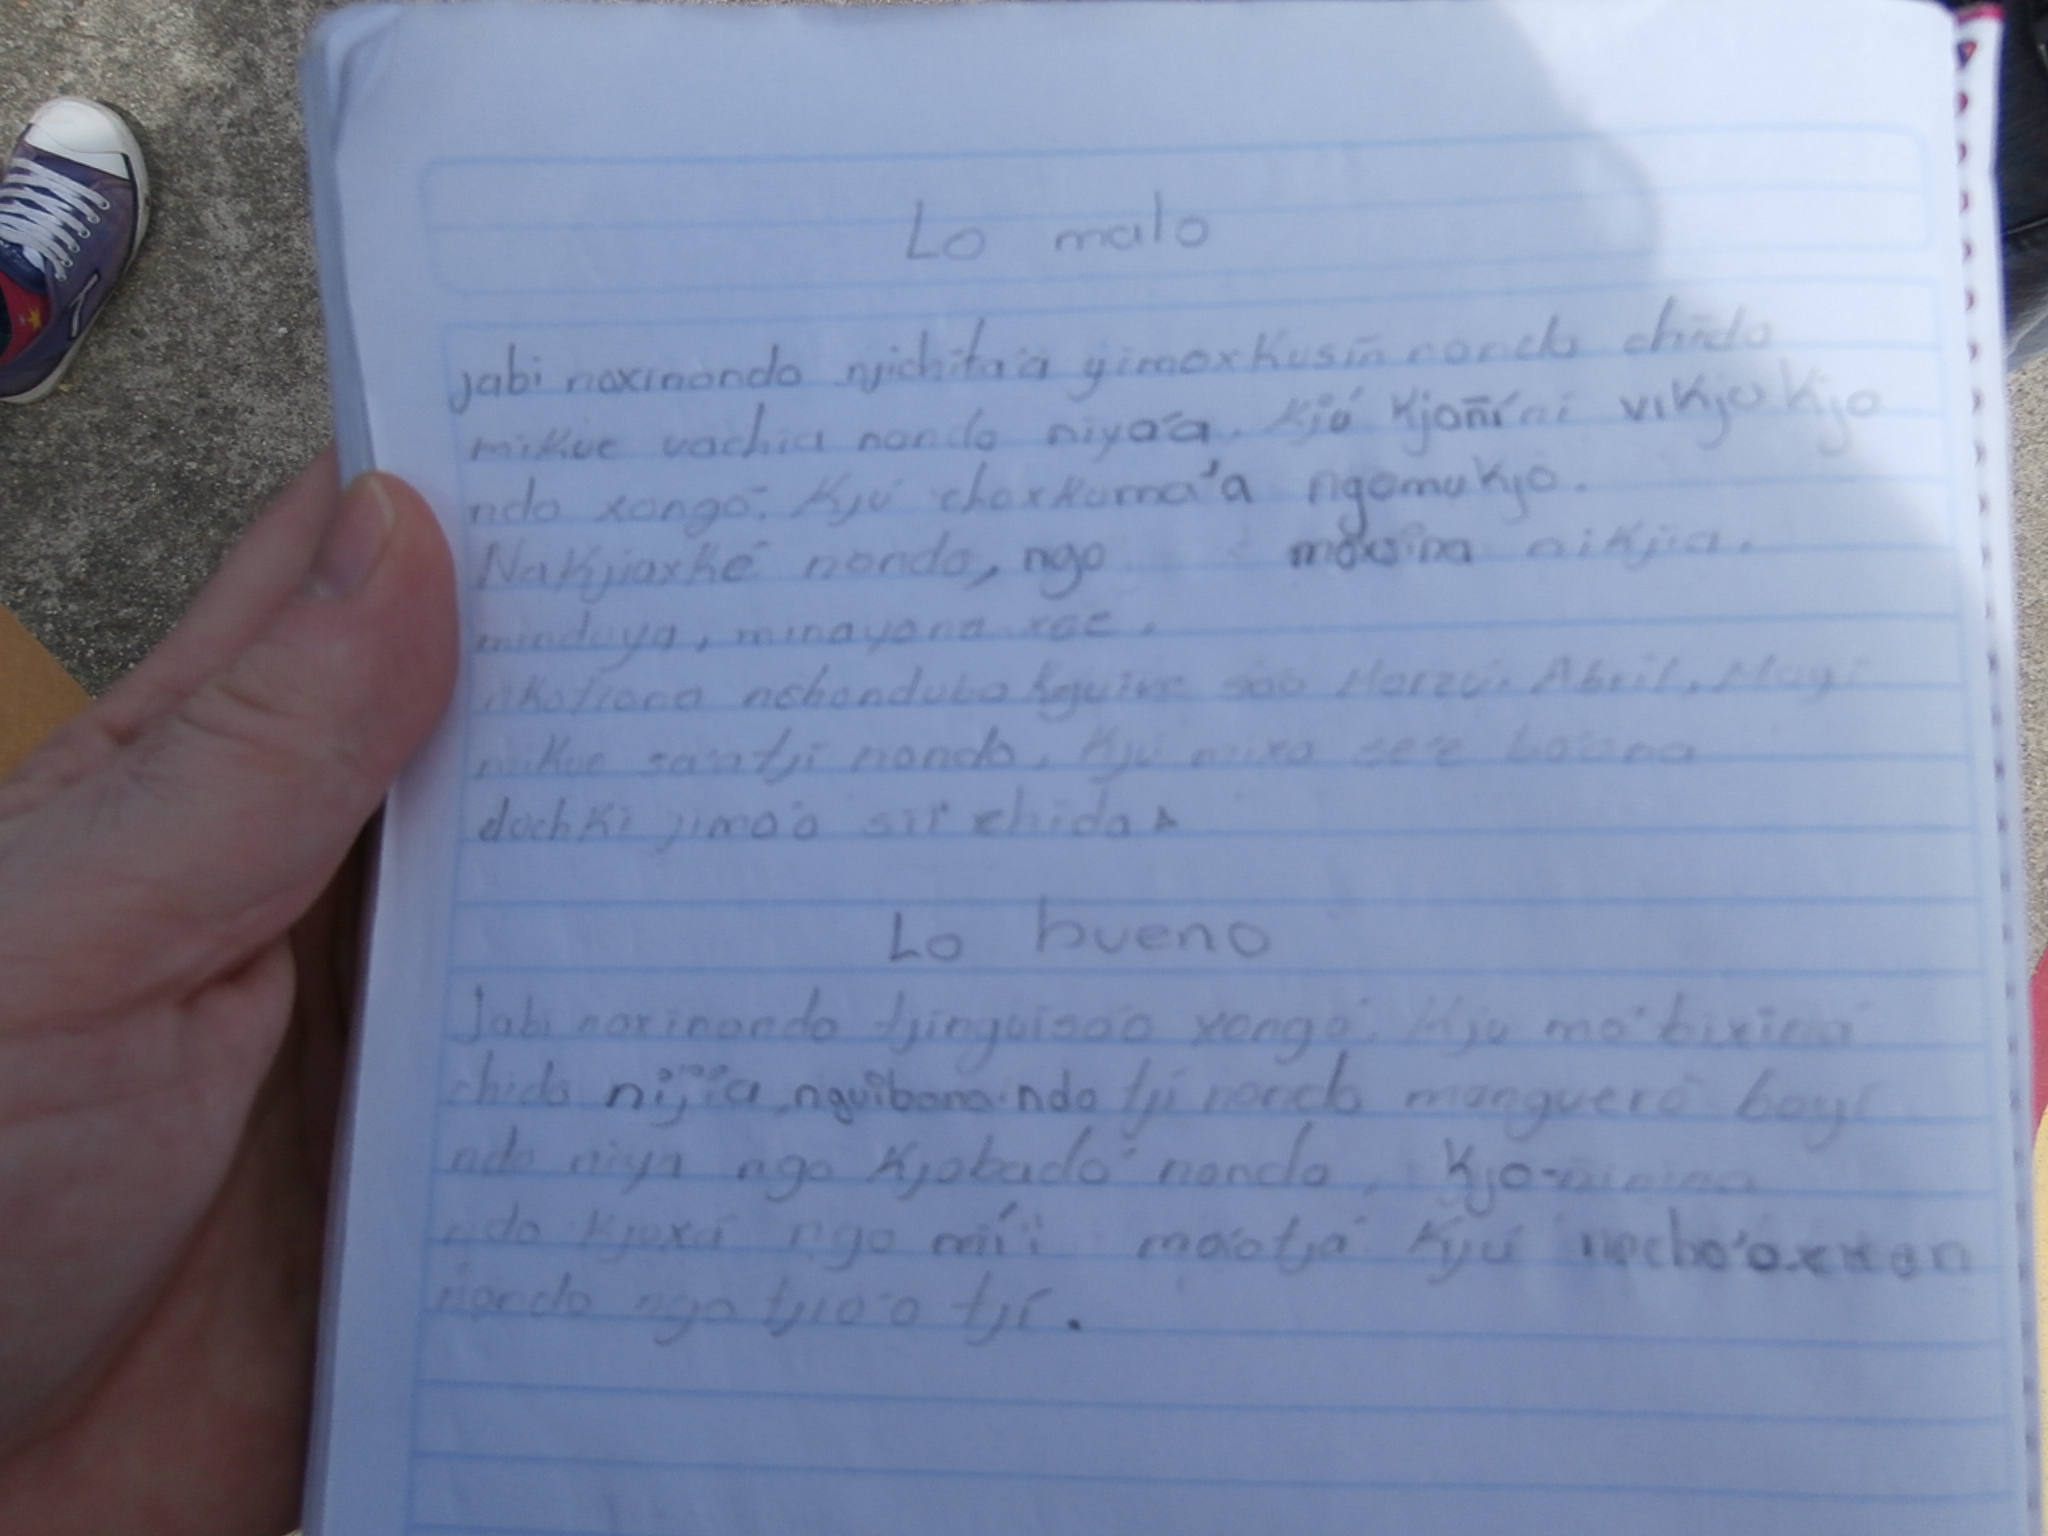 Lo malo
jabi naxinando njichita'a yimaxkusiñ nando chida
mikue vachia nando niya'a. Kjú Kjoñi'ni vikjukjo
nda xangó. Kjú choxkuma'a ngomukjo.
Nakjiaxké nando, ngo nikjia.
minduya, minayana xae.
Kguive são Marzú. Abril. Mayi
mikue sa'atji nando, Kjú mixa se'e
dochki jima'a sii chida
Lo bueno
Jabi naxinando tjinguisa'o xangó. Kju ma'bixina
chida nijia, nguibana nda tji nando manguerá bayi
nda niya ngo Kjobadó nando,
nda kjuxá ngo mi'i ma'otjá Kjú
nando ngo tjio'o tjí.